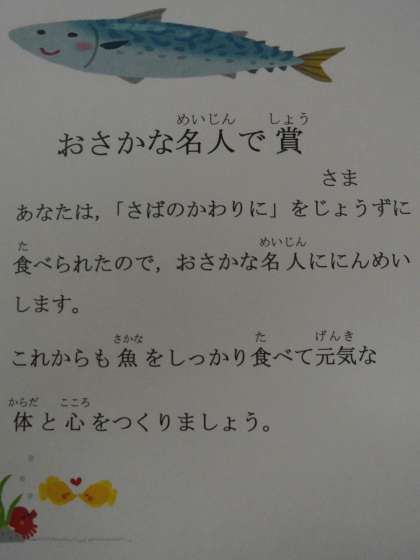 おさかな名人で賞
さま
あなたは,「さばのかわりに」をじょうずに
食べられたので,おさかな名人ににんめい
します。
これからも魚をしっかり食べて元気な
体と心をつくりましょう。